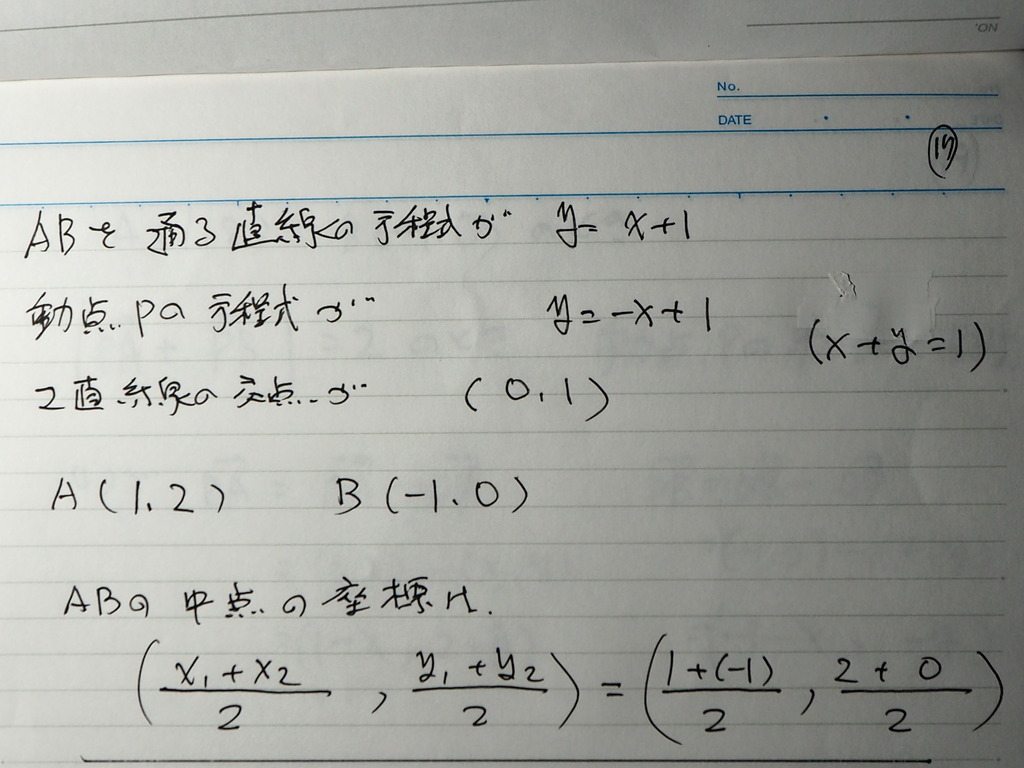 No.
DATE
⑰
ABを通る直線の方程式が y = x+1
動点Pの方程式が y = -x+1
(x+y=1)
2直線の交点が (0,1)
A(1,2) B(-1,0)
ABの中点の座標は、
((x₁+x₂)/2 , (y₁+y₂)/2) = ((1+(-1))/2 , (2+0)/2)